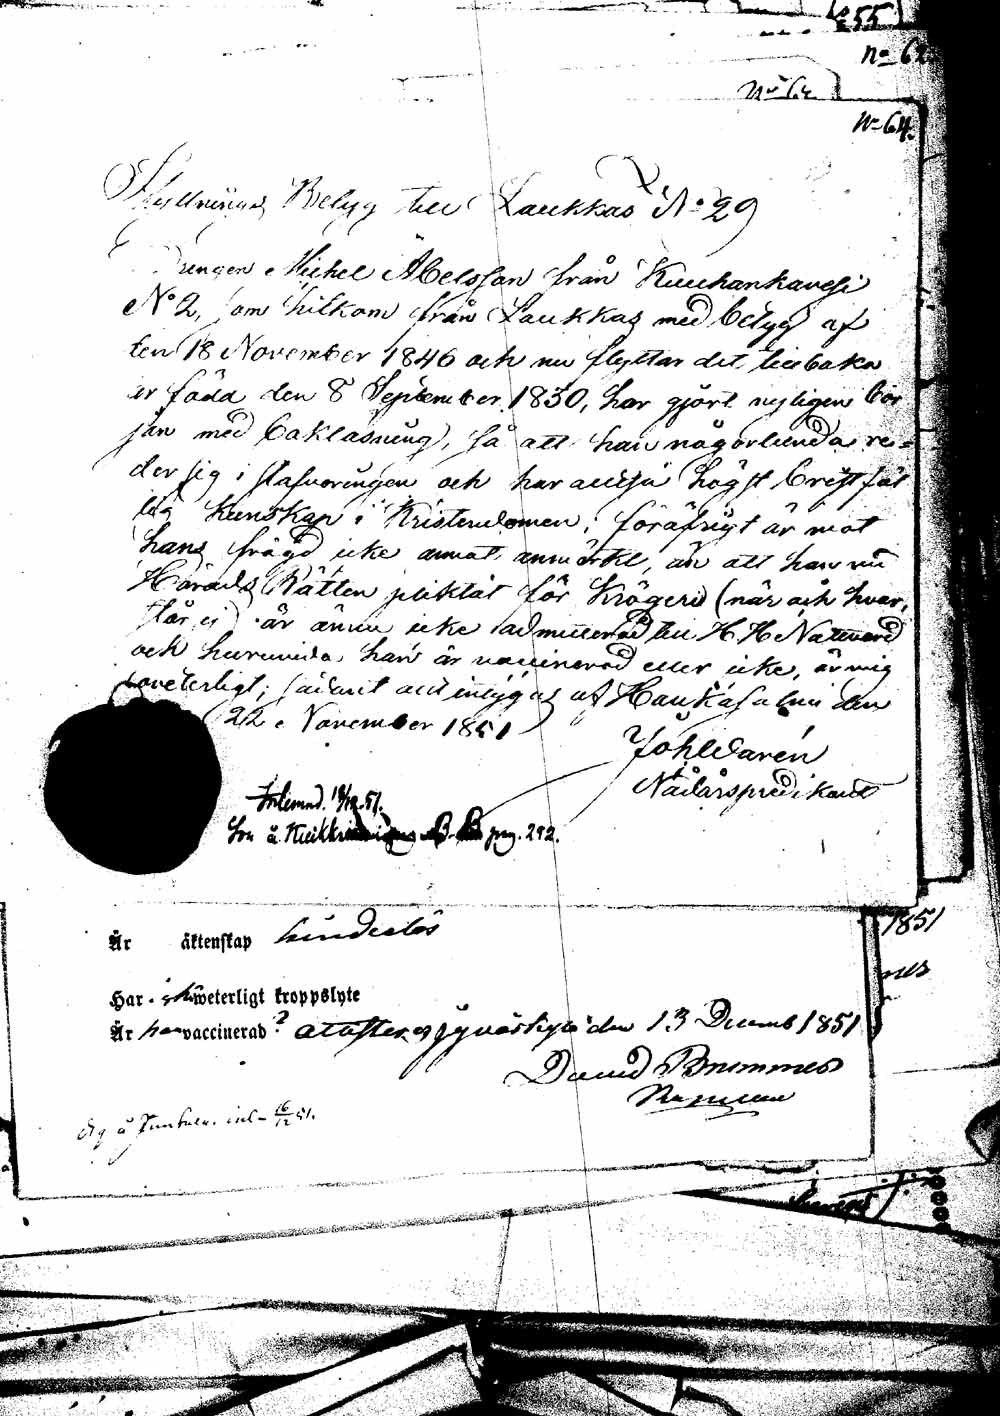 55
No 62
No 64.
Flyttnings Belyg till Laukkas No 29
Drengen Michel Abelsson från Kuuhankavesi
No 2, som hitkom från Laukkas med belyg af
den 18 November 1846 och nu flyttar dit tillbaka
är född den 8 September 1830, har gjört nyligen bör
jan med bakläsning, så att han någorlunda re-
der sig i stafvoringen och har altså högst bristfäl
lig Kunskap i Kristendomen; föröfrigt är mot
hans frägd icke annat anmärkt, än att han vid
Härads Rätten pliktat för Krögeri (när och hvar,
står ej) är ännu icke admitterad till H. H. Nattvard
och huruvida han är vaccinerad eller icke, är mig
oveterligt; sådant attesteras af Hankasalmi den
22 November 1851
Joh Ldarén
Nådårspredikant
Inlemnad 18/12 51.
pag. 292.
1851
Är äktenskap hinderlös
Har veterligt kroppslyte
Är vaccinerad? attesteras Jyväskylä den 13 Decemb 1851
David
inl- 16/12 51.